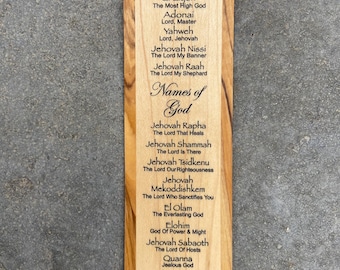 The Most High God
Adonai
Lord, Master
Yahweh
Lord, Jehovah
Jehovah Nissi
The Lord My Banner
Jehovah Raah
The Lord My Shephard
Names of
God
Jehovah Rapha
The Lord That Heals
Jehovah Shammah
The Lord Is There
Jehovah Tsidkenu
The Lord Our Righteousness
Jehovah
Mekoddishkem
The Lord Who Sanctifies You
El Olam
The Everlasting God
Elohim
God Of Power & Might
Jehovah Sabaoth
The Lord Of Hosts
Quanna
Jealous God